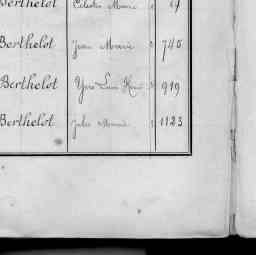 Berthelot Célestin Marie 19
Berthelot Jean Marie 2 746
Berthelot Yves Louis Henri 3 919
Berthelot Jules Marie 3 1123